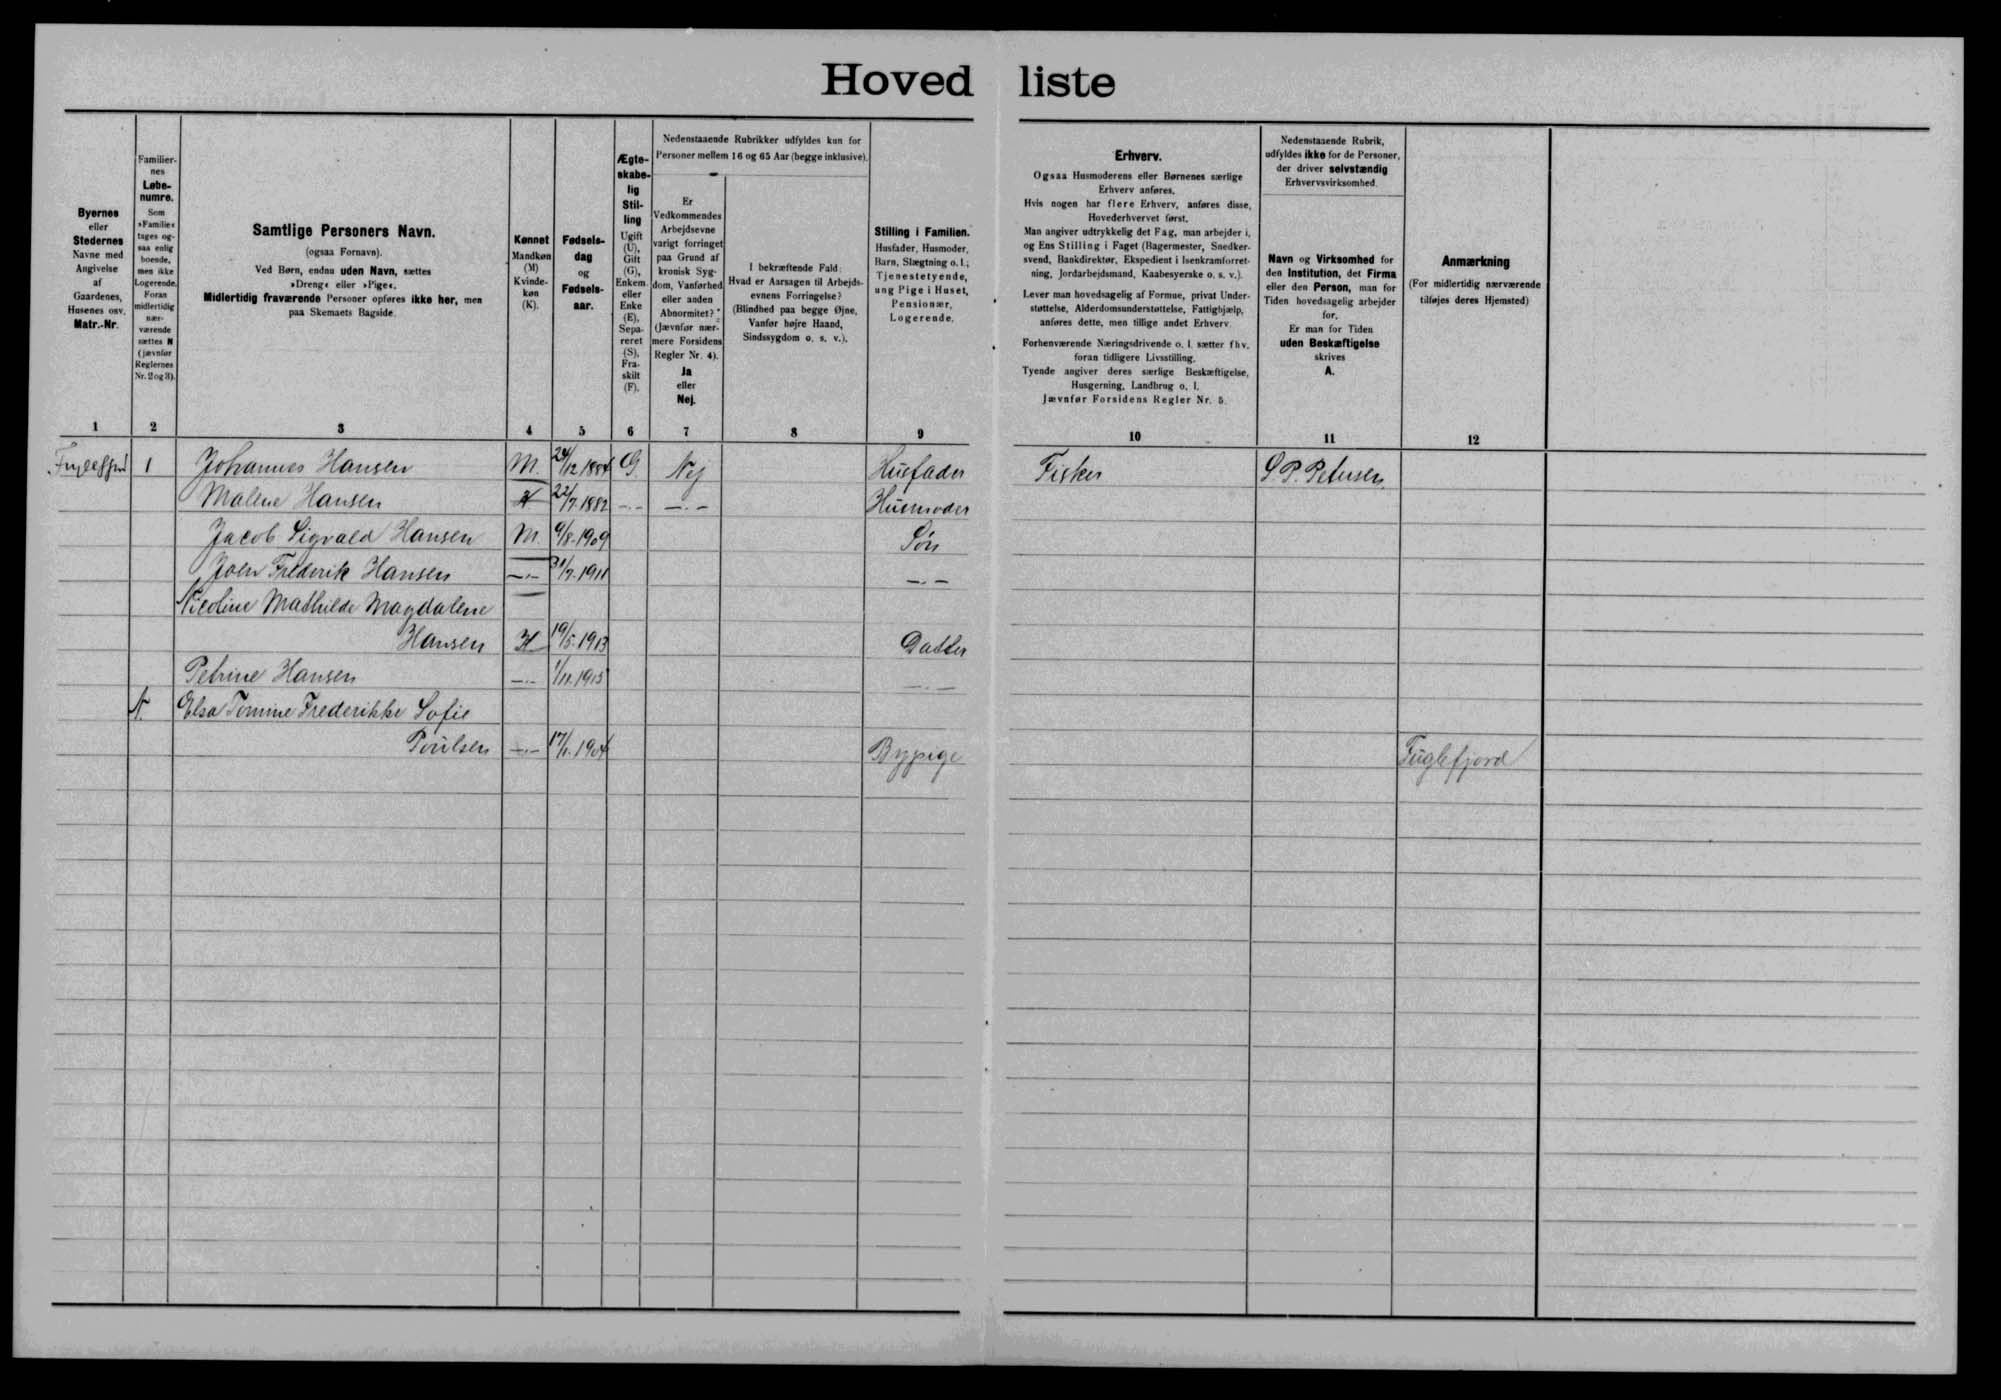 Hovedliste
Byernes
eller
Stedernes
Navne med
Angivelse
af
Gaardenes,
Husenes osv.
Matr.-Nr.
Familier-
nes
Løbe-
numre.
Som
»Familie«
tages og-
saa enlig
boende,
men ikke
Logerende.
Foran
midlertidig
nær-
værende
sættes N
(jævnfør
Reglernes
Nr. 2 og 3).
Samtlige Personers Navn.
(ogsaa Fornavn).
Ved Børn, endnu uden Navn, sættes
»Dreng« eller »Pige«.
Midlertidig fraværende Personer opføres ikke her, men
paa Skemaets Bagside.
Kønnet
Mandkøn
(M)
Kvinde-
køn
(K).
Fødsels-
dag
og
Fødsels-
aar.
Ægte-
skabe-
lig
Stil-
ling
Ugift
(U),
Gift
(G),
Enkem.
eller
Enke
(E),
Sepa-
reret
(S),
Fra-
skilt
(F).
Nedenstaaende Rubrikker udfyldes kun for
Personer mellem 16 og 65 Aar (begge inklusive).
Er
Vedkommendes
Arbejdsevne
varigt forringet
paa Grund af
kronisk Syg-
dom, Vanførhed
eller anden
Abnormitet?
(Jævnfør nær-
mere Forsidens
Regler Nr. 4).
Ja
eller
Nej.
I bekræftende Fald:
Hvad er Aarsagen til Arbejds-
evnens Forringelse?
(Blindhed paa begge Øjne,
Vanfør højre Haand,
Sindssygdom o. s. v.).
Stilling i Familien.
Husfader, Husmoder,
Barn, Slægtning o. l.;
Tjenestetyende,
ung Pige i Huset,
Pensionær,
Logerende.
Erhverv.
Ogsaa Husmoderens eller Børnenes særlige
Erhverv anføres.
Hvis nogen har flere Erhverv, anføres disse,
Hovederhvervet først.
Man angiver udtrykkelig det Fag, man arbejder i,
og Ens Stilling i Faget (Bagermester, Snedker-
svend, Bankdirektør, Ekspedient i Isenkramforret-
ning, Jordarbejdsmand, Kaabesyerske o. s. v.).
Lever man hovedsagelig af Formue, privat Under-
støttelse, Alderdomsunderstøttelse, Fattighjælp,
anføres dette, men tillige andet Erhverv.
Forhenværende Næringsdrivende o. l. sætter fhv.
foran tidligere Livsstilling.
Tyende angiver deres særlige Beskæftigelse,
Husgerning, Landbrug o. l.
Jævnfør Forsidens Regler Nr. 5.
Nedenstaaende Rubrik,
udfyldes ikke for de Personer,
der driver selvstændig
Erhvervsvirksomhed.
Navn og Virksomhed for
den Institution, det Firma
eller den Person, man for
Tiden hovedsagelig arbejder
for.
Er man for Tiden
uden Beskæftigelse
skrives
A.
Anmærkning
(For midlertidig nærværende
tilføjes deres Hjemsted)
1 2 3 4 5 6 7 8 9 10 11 12
1 Johannes Hansen M. 24/12 1884 G. Nej Husfader Fisker S. P. Petersen
Malene Hansen K 22/7.1882 -.- -.- Husmoder
Jacob Sigvald Hansen M. 9/8.1909 Søn
Joen Frederik Hansen -.- 31/7.1911 -.-
Nicoline Mathilde Magdalene
Hansen K 19/5.1913 Datter
Petrine Hansen -.- 1/11.1915 -.-
N. Elsa Tomine Frederikke Sofie
Poulsen -.- 17/1.1904 Bypige Fuglefjord